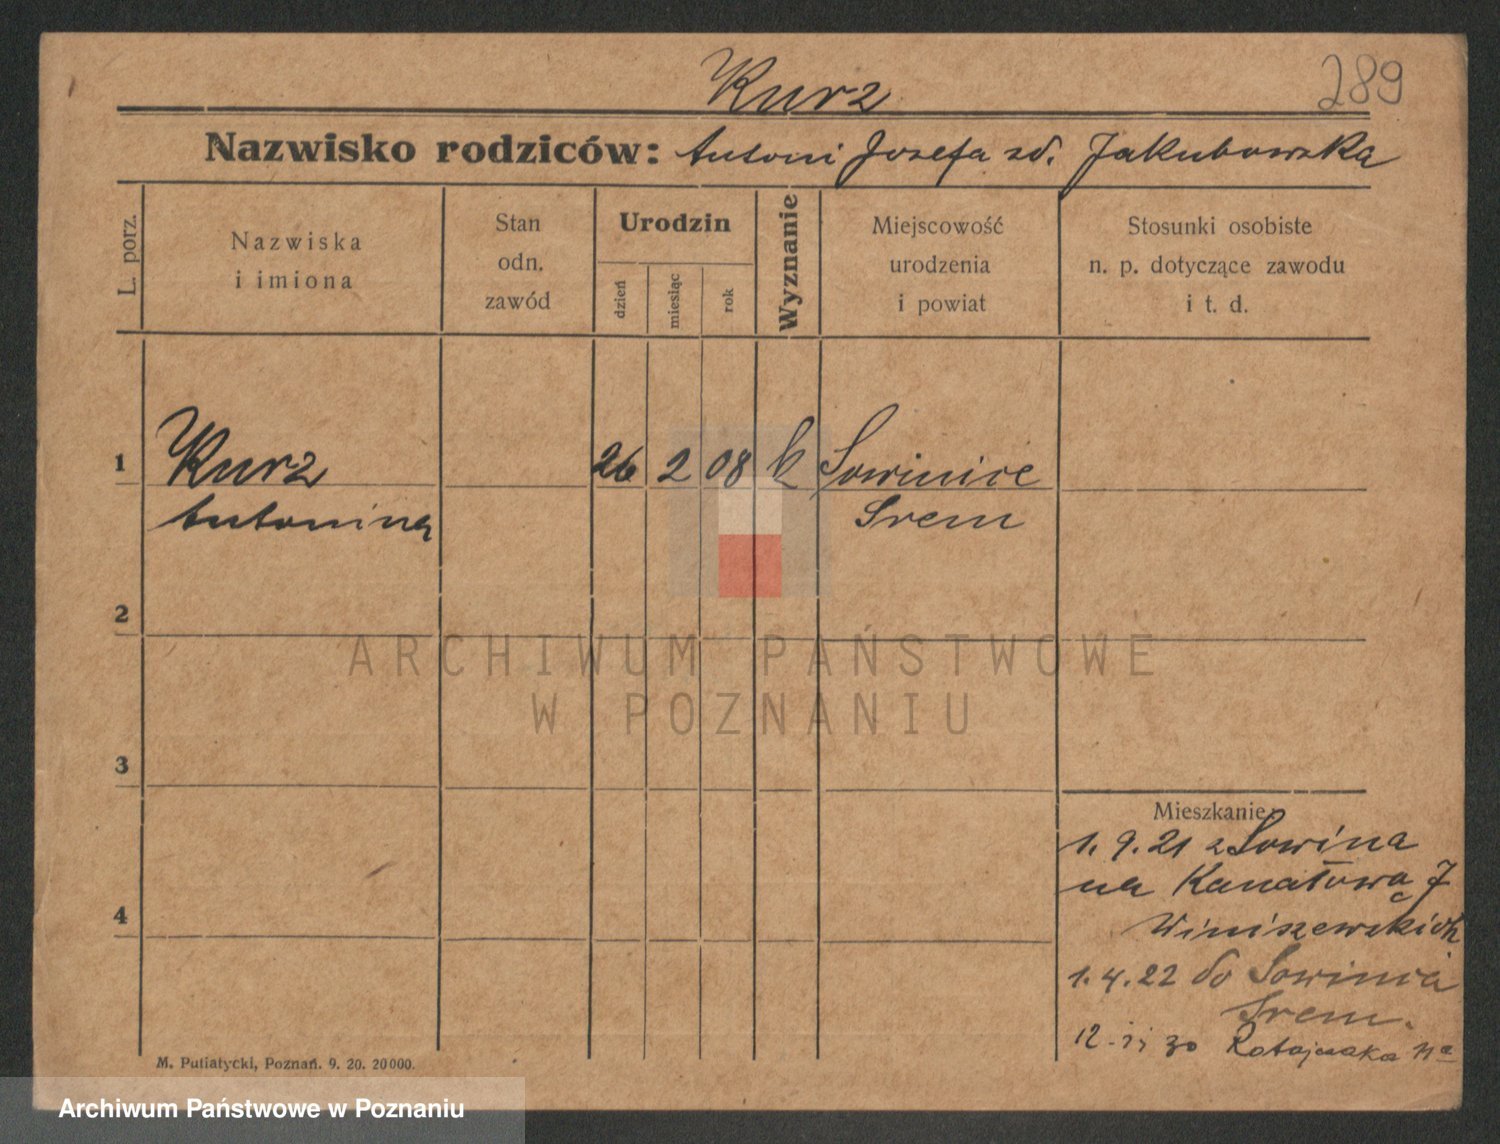 289
Kurz
Nazwisko rodziców: Antoni Josefa zd. Jakubowska
L. porz.
Nazwiska
i imiona
Stan
odn.
zawód
Urodzin
dzień
miesiąc
rok
Wyznanie
Miejscowość
urodzenia
i powiat
Stosunki osobiste
n. p. dotyczące zawodu
i t. d.
1 Kurz 26 2 08 k Sowinice
Antonina Srem
2
3
4
Mieszkanie:
1. 9. 21 z Sowina
na Kanałową
1. 4. 22 do
Srem.
30 Ratajczaka
M. Putiatycki, Poznań. 9. 20. 20000.
ARCHIWUM PAŃSTWOWE
W POZNANIU
Archiwum Państwowe w Poznaniu